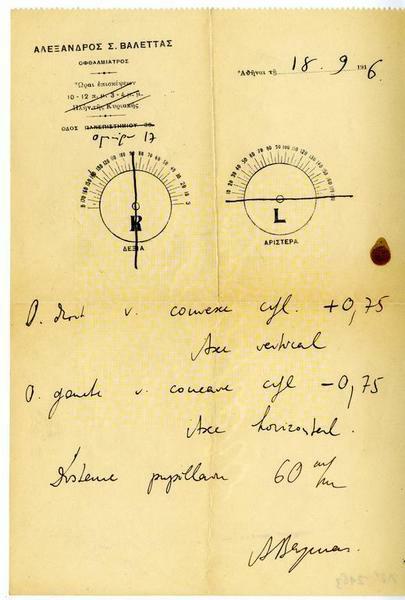 ΑΛΕΞΑΝΔΡΟΣ Σ. ΒΑΛΕΤΤΑΣ
ΟΦΘΑΛΜΙΑΤΡΟΣ
Ὧραι ἐπισκέψεων
10-12 π. μ. 3-4 μ. μ.
Πλὴν τῆς Κυριακῆς
ΟΔΟΣ ΠΑΝΕΠΙΣΤΗΜΙΟΥ
17
Ἀθῆναι τῇ 18. 9 1916
R
ΔΕΞΙΑ
L
ΑΡΙΣΤΕΡΑ
O. droit v. convexe cyl. +0,75
Axe vertical
O. gauche v. concave cyl -0,75
Axe horizontal.
Distance pupillaire 60 m/m